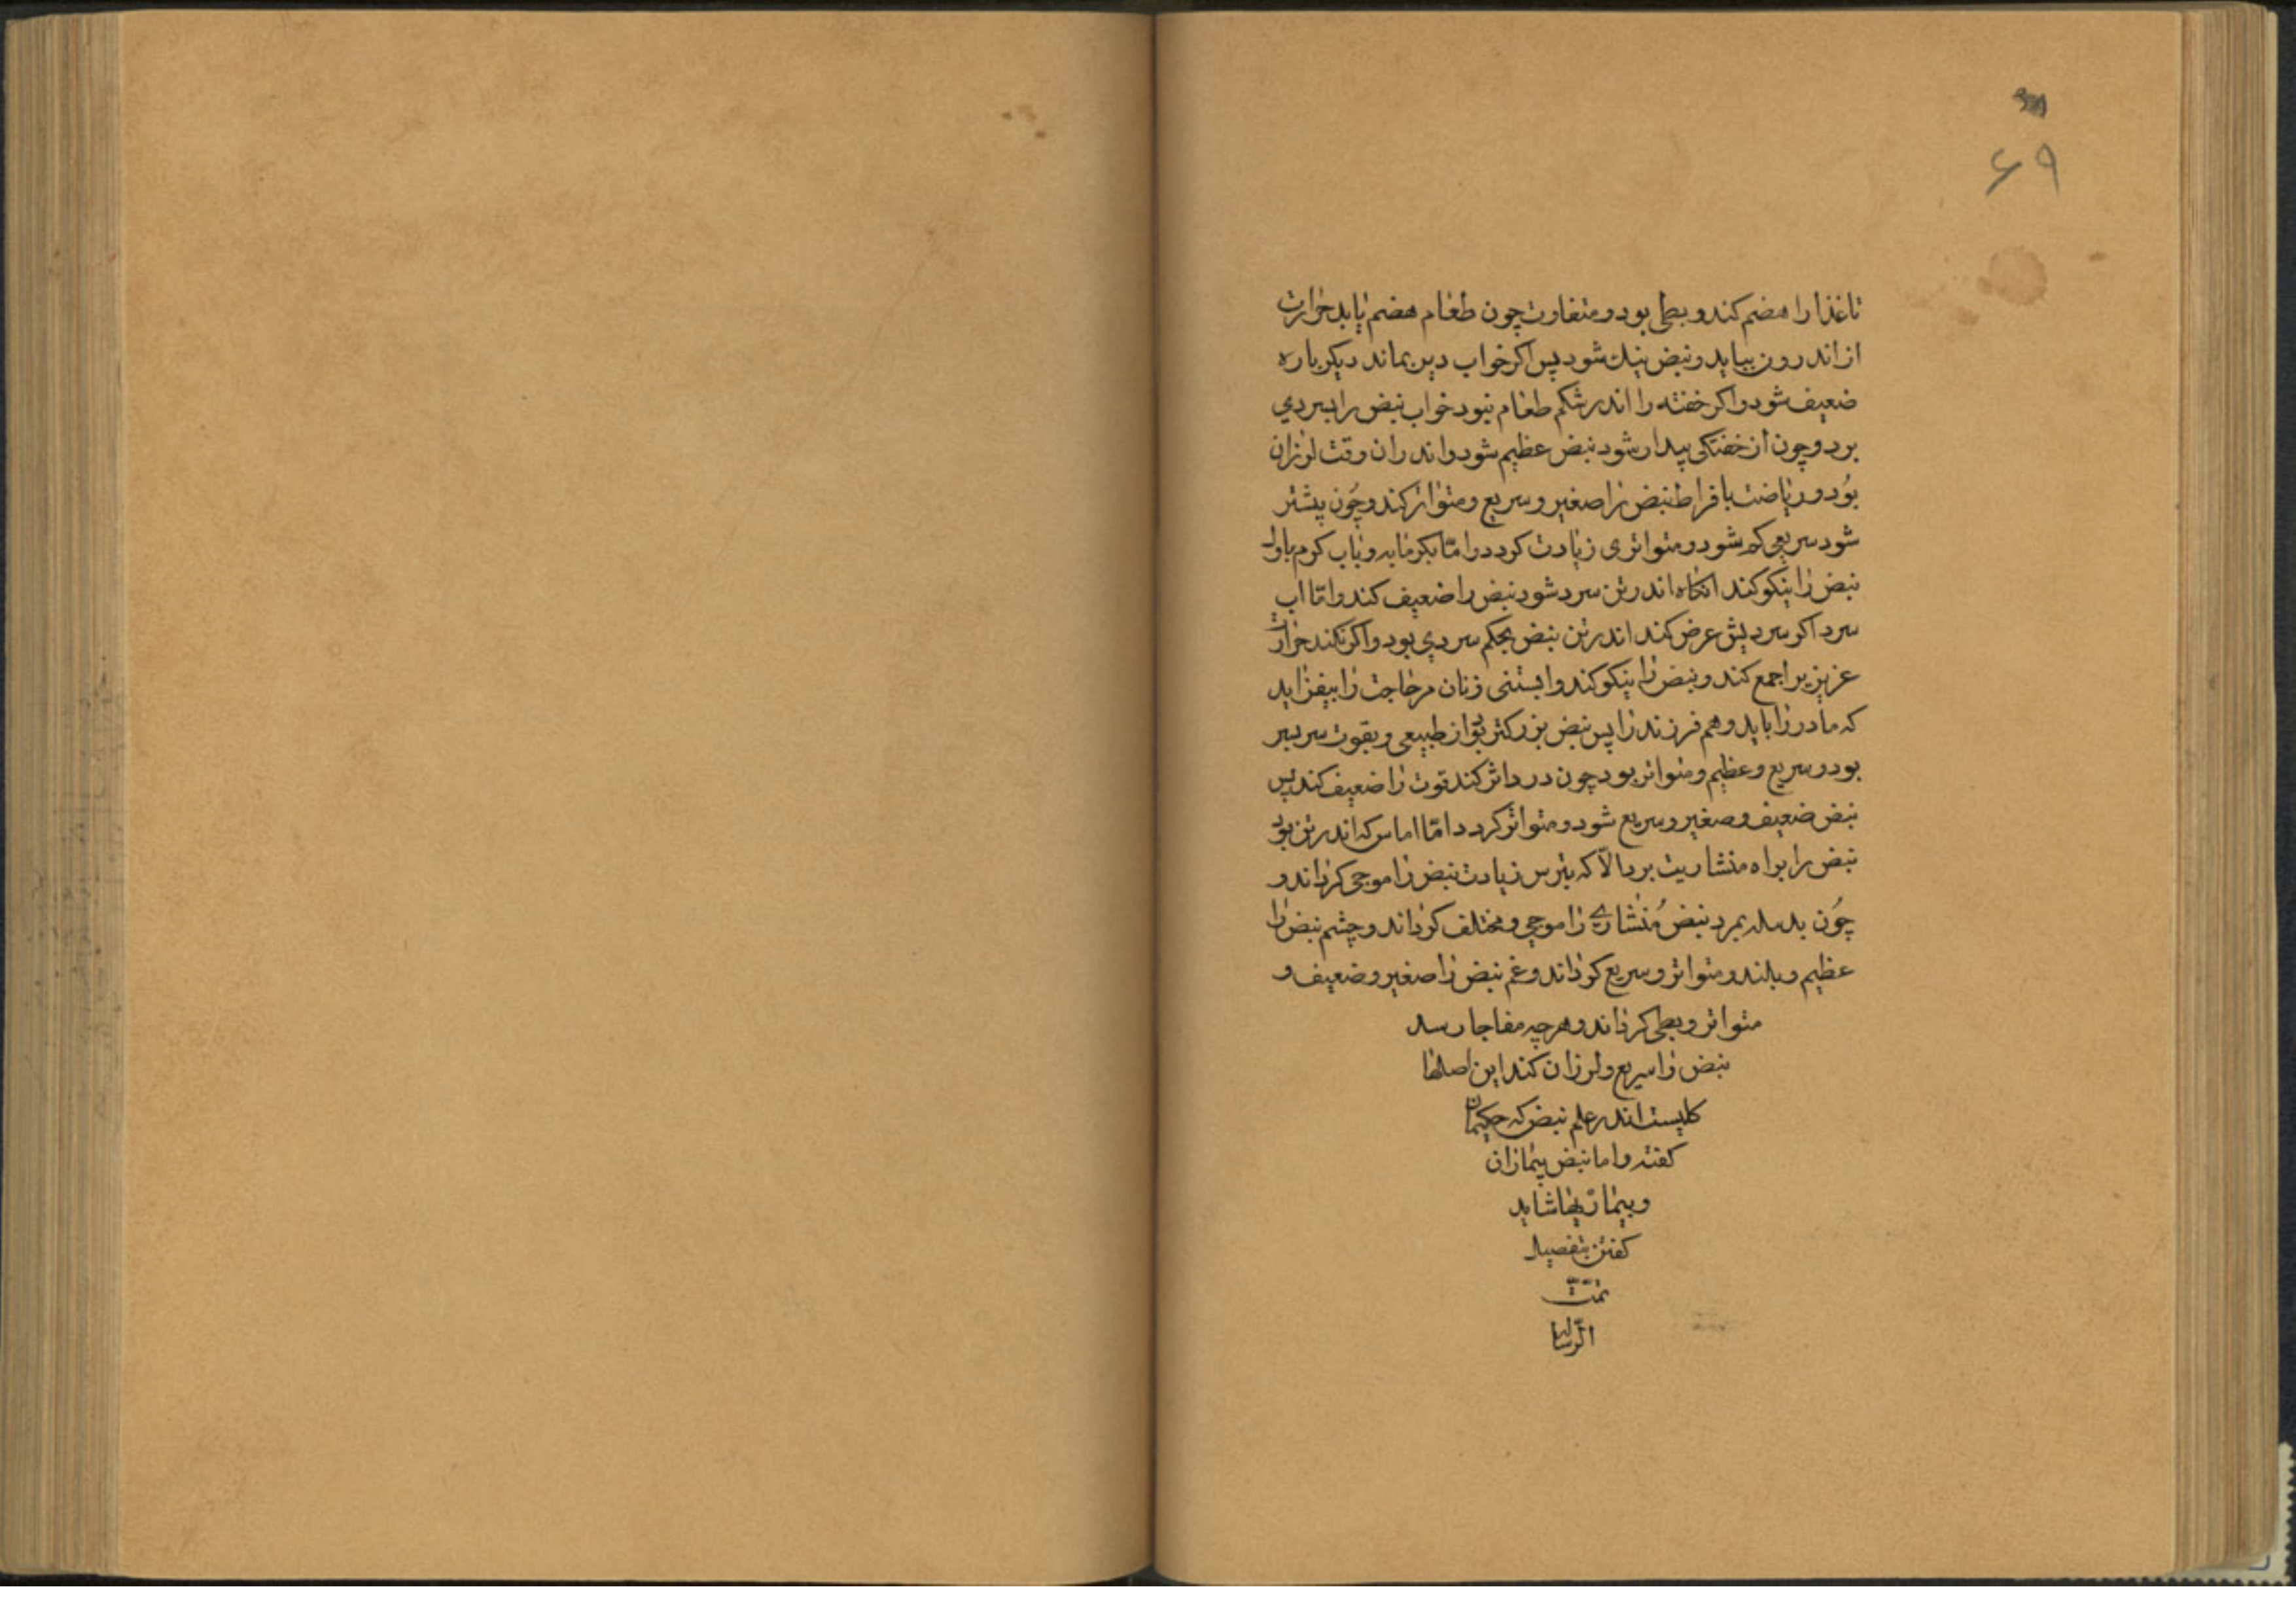 ۶۹
تا غذا را هضم کند و بطی بود و متفاوت چون طعام هضم یابد حرارت
از اندرون بیاید و نبض نیک شود پس اکر خواب دیر بماند دیکر باره
ضعیف شود و اکر خفته را اندر شکم طعام نبود خواب نبض را بسردی
برد و چون از خفتکی بیدار شود نبض عظیم شود و اندران وقت لرزان
بُود و ریاضت بافراط نبض را صغیر و سریع و متواتر کند و چُون بیشتر
شود سریعی کم شود و متواتری زیادت کردد و امّا بکرمابه و باب کرم باول
نبض را نیکو کند انکاه اندر تن سرد شود نبض را ضعیف کند و امّا اب
سرد اکر سردیش عرض کند اندر تن نبض بحکم سردی بود و اکر نکند حرارت
عزیزیرا جمع کند و نبض را نیکو کند و ابستنی زنان مر حاجت را بیفزاید
که مادر را باید و هم فرزند را پس نبض بزرکتر بود از طبیعی و بقوت سربسر
بود و سریع و عظیم و متواتر بود چون درد اثر کند قوت را ضعیف کند پس
نبض ضعیف و صغیر و سریع شود و متواتر کردد امّا اماس که اندر تن بود
نبض را براه منشاریت برد الّا که بترس زیادت نبض را موجی کرداند و
چُون بدیله بمرد نبض مُنشاری را موجی و مختلف کرداند و چشم نبض را
عظیم و بلند و متواتر و سریع کرداند و غم نبض را صغیر و ضعیف و
متواتر و بطی کرداند و هرچه مفاجا رسد
نبض را سریع و لرزان کند این اصلها
کلیست اندر علم نبض که حکیمان
کفته و اما نبض بیماران
و بیماریها شاید
کفتن بتفصیل
تمّت
الرّساله